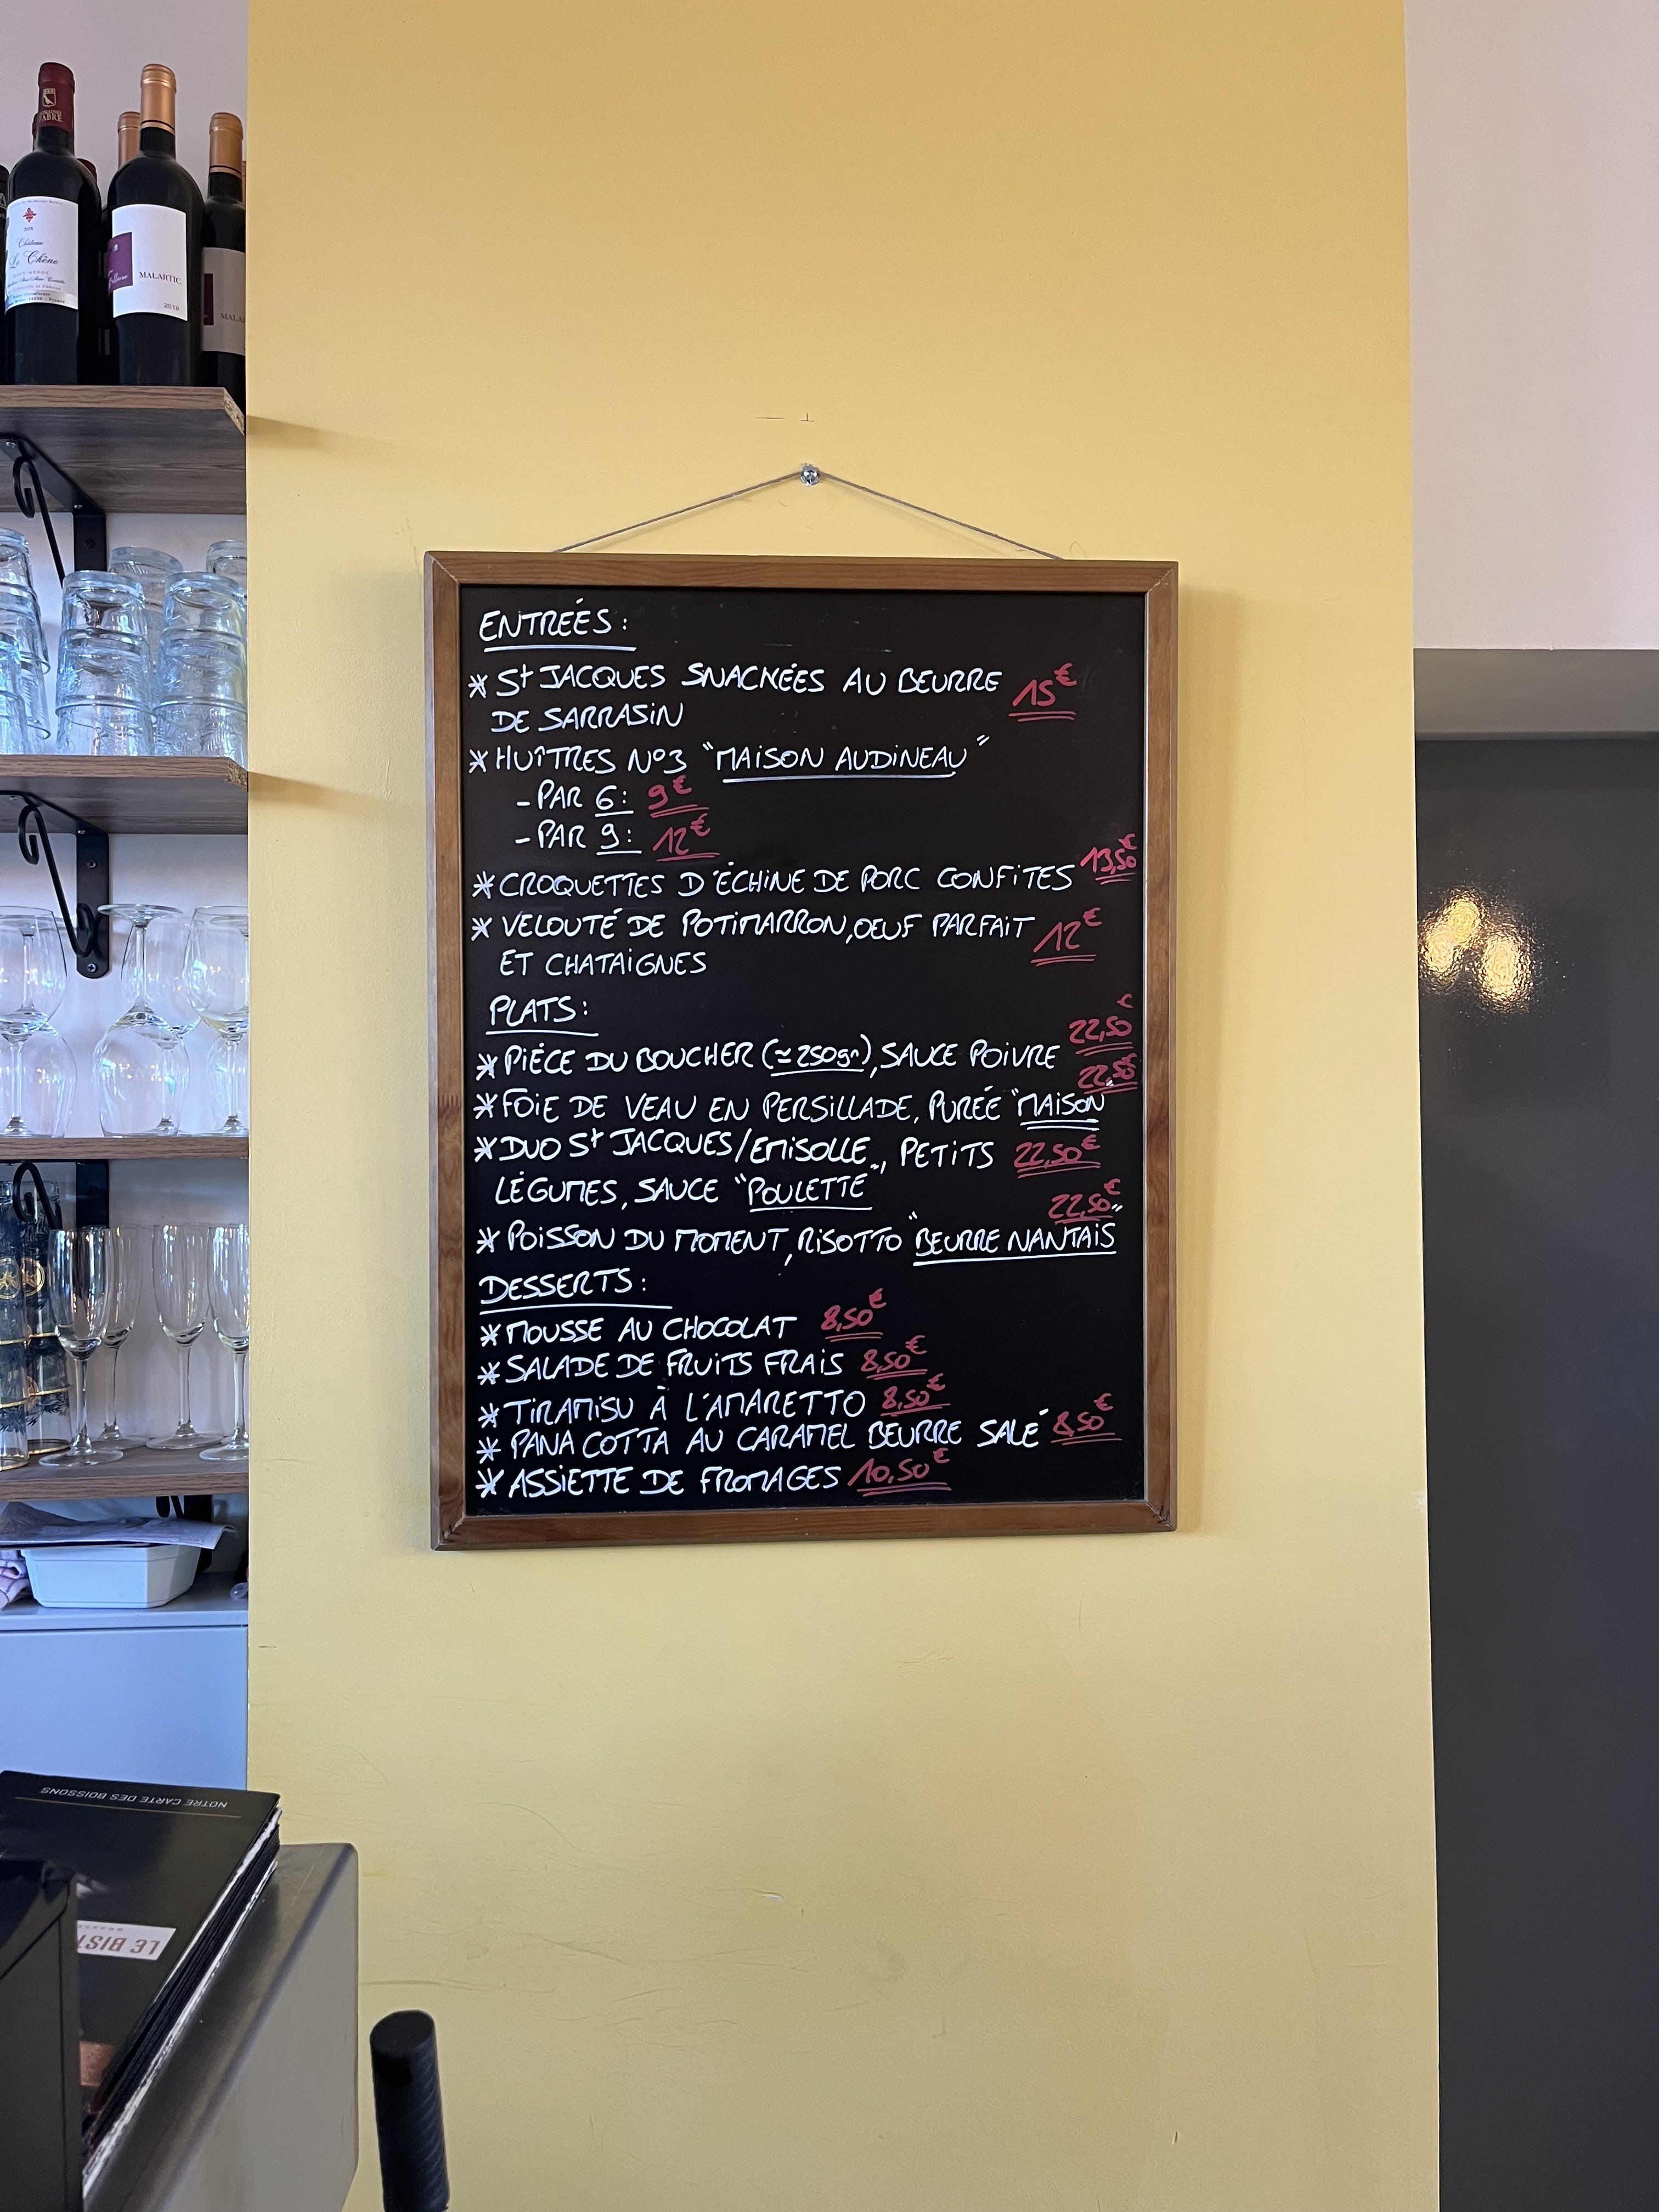 ENTREÉS :
* St JACQUES SNACKÉES AU BEURRE 15€
DE SARRASIN
* HUÎTRES N°3 "MAISON AUDINEAU"
- PAR 6 : 9€
- PAR 9 : 12€
* CROQUETTES D'ÉCHINE DE PORC CONFITES 13,50€
* VELOUTÉ DE POTIMARRON, OEUF PARFAIT 12€
ET CHATAIGNES
PLATS :
* PIÉCE DU BOUCHER (≃250gr), SAUCE POIVRE 22,50€
* FOIE DE VEAU EN PERSILLADE, PURÉE "MAISON" 22,50€
* DUO St JACQUES/EMISOLLE, PETITS 22,50€
LÉGUMES, SAUCE "POULETTE"
* POISSON DU MOMENT, RISOTTO "BEURRE NANTAIS" 22,50€
DESSERTS :
* MOUSSE AU CHOCOLAT 8,50€
* SALADE DE FRUITS FRAIS 8,50€
* TIRAMISU À L'AMARETTO 8,50€
* PANA COTTA AU CARAMEL BEURRE SALÉ 8,50€
* ASSIETTE DE FROMAGES 10,50€
Château
Le Chêne
MALARTIC
2019
NOTRE CARTE DES BOISSONS
LE BIST